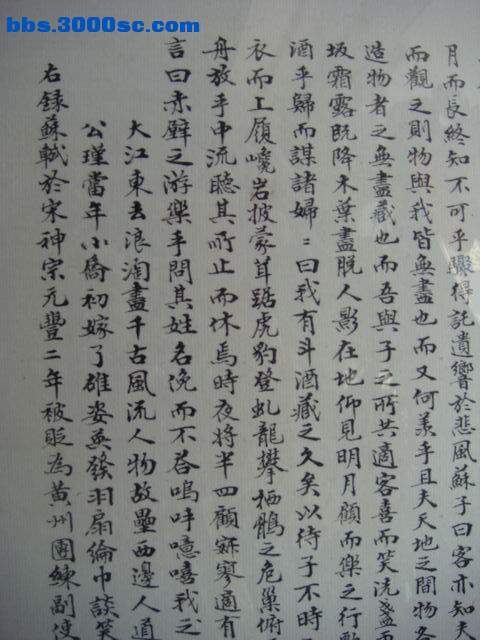 bbs.3000sc.com
月而長終知不可乎驟得託遺響於悲風蘇子曰客亦知夫
而觀之則物與我皆無盡也而又何羨乎且夫天地之間物各
造物者之無盡藏也而吾與子之所共適客喜而笑洗盞
坂霜露既降木葉盡脫人影在地仰見明月顧而樂之行歌
酒乎歸而謀諸婦：曰我有斗酒藏之久矣以待子不時
衣而上履巉岩披蒙茸踞虎豹登虬龍攀栖鶻之危巢俯
舟放乎中流聽其所止而休焉時夜將半四顧寂寥適有
言曰赤壁之游樂乎問其姓名俛而不答嗚呼噫嘻我
大江東去浪淘盡千古風流人物故壘西邊人道
公瑾當年小喬初嫁了雄姿英發羽扇綸巾談笑
右錄蘇軾於宋神宗元豐二年被貶為黃州團練副使